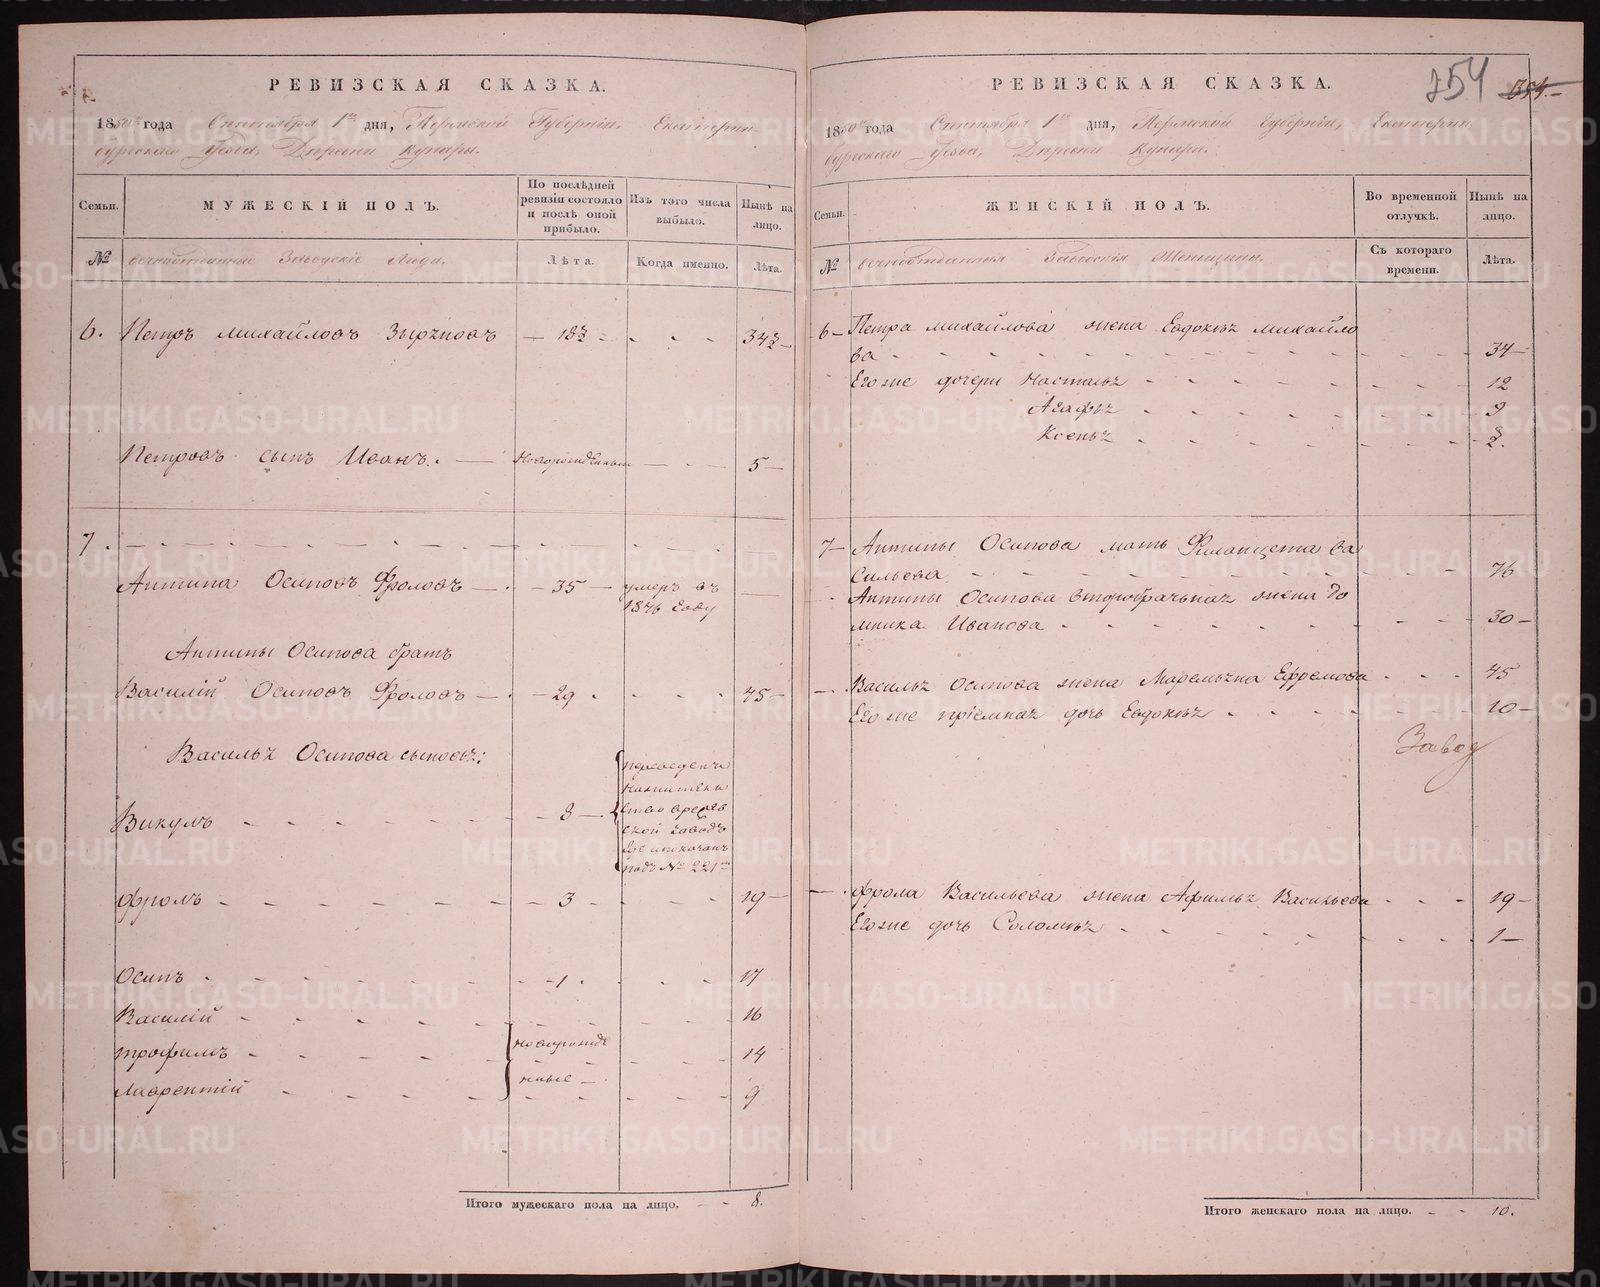 РЕВИЗСКАЯ СКАЗКА.
1850го года Сентября 1го дня, Пермской Губерніи, Екатерин-
бургскаго Уезда, Деревни Кунары.
Семьи.
МУЖЕСКІЙ ПОЛЪ.
По послѣдней ревизіи состояло и послѣ оной прибыло.
Изъ того числа выбыло.
Нынѣ на лицо.
№
вечноотданные Заводскіе Люди.
Лѣта.
Когда именно.
Лѣта.
6. Петръ Михайловъ Зыряновъ — 18½ - - - 34½ —
Петровъ сынъ Иванъ. — новорожденный — - 5 —
7. — - — - —
Антипа Осиповъ Фроловъ — - — 35 — умеръ въ
1846 году
Антипы Осипова братъ
Василій Осиповъ Фроловъ — - — 29 - - - 45 —
Василья Осипова сыновья:
переведенъ
ской заводъ
где и показанъ
подъ № 221мъ
Викулъ - - - - - 8 —
Фролъ - - - - - 3 - - - 19 —
Осипъ - - - - - 1 - - - 17
Василій - - - - - 16
Трофимъ - - - - новорожде 14
Лаврентій - - - - нные — 9
Итого мужескаго пола на лицо. - - 8.
254 354.
РЕВИЗСКАЯ СКАЗКА.
1850го года Сентября 1го дня, Пермской Губерніи, Екатерин
бургскаго Уезда, Деревни Кунары.
Семьи.
ЖЕНСКІЙ ПОЛЪ.
Во временной отлучкѣ.
Нынѣ на лицо.
№
вечноотданныя Заводскія Женщины.
Съ котораго времени.
Лѣта.
6 — Петра Михайлова жена Евдокья Михайло
ва - - - - - 34 —
Его же дочери Настасья - - - - 12
Агафья - - - - 9
Ксенья - - - - 2.
7 — Антипы Осипова мать Филанцета Ва
сильева - - - - - 76
Антипы Осипова второбрачная жена До
мника Иванова - - - - - 30 —
— Василья Осипова жена Маремьяна Ефремова - - - 45
Его же пріемная дочь Евдокья - - - - 10 —
Завод
— Фрола Васильева жена Афимья Васильева - - - 19 —
Его же дочь Соломья - - - - 1 —
Итого женскаго пола на лицо. - - 10.
METRIKI.GASO-URAL.RU